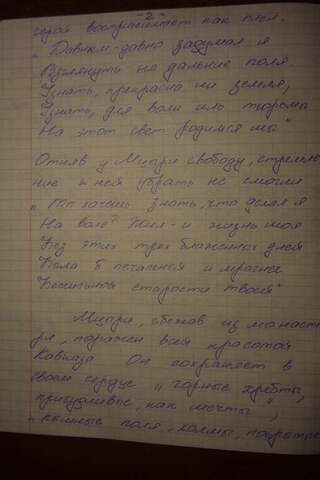 -2-
герой воспринимает как плен.
„Давным-давно задумал я
Взглянуть на дальние поля
Узнать, прекрасна ли земля,
Узнать, для воли иль тюрьмы
На этот свет родимся мы"
Отняв у Мцыри свободу, стремле-
ние к ней убрать не смогли
„Ты хочешь знать, что делал я
На воле? Жил - и жизнь моя
Без этих трех блаженных дней
Была б печальней и мрачней
Бессильной старости твоей"
Мцыри, сбежав из монаст
ря, поражен всей красотой
Кавказа Он сохраняет в
своем сердце „горные хребты,
причудливые, как мечты",
„пышные поля, холмы, покрытые